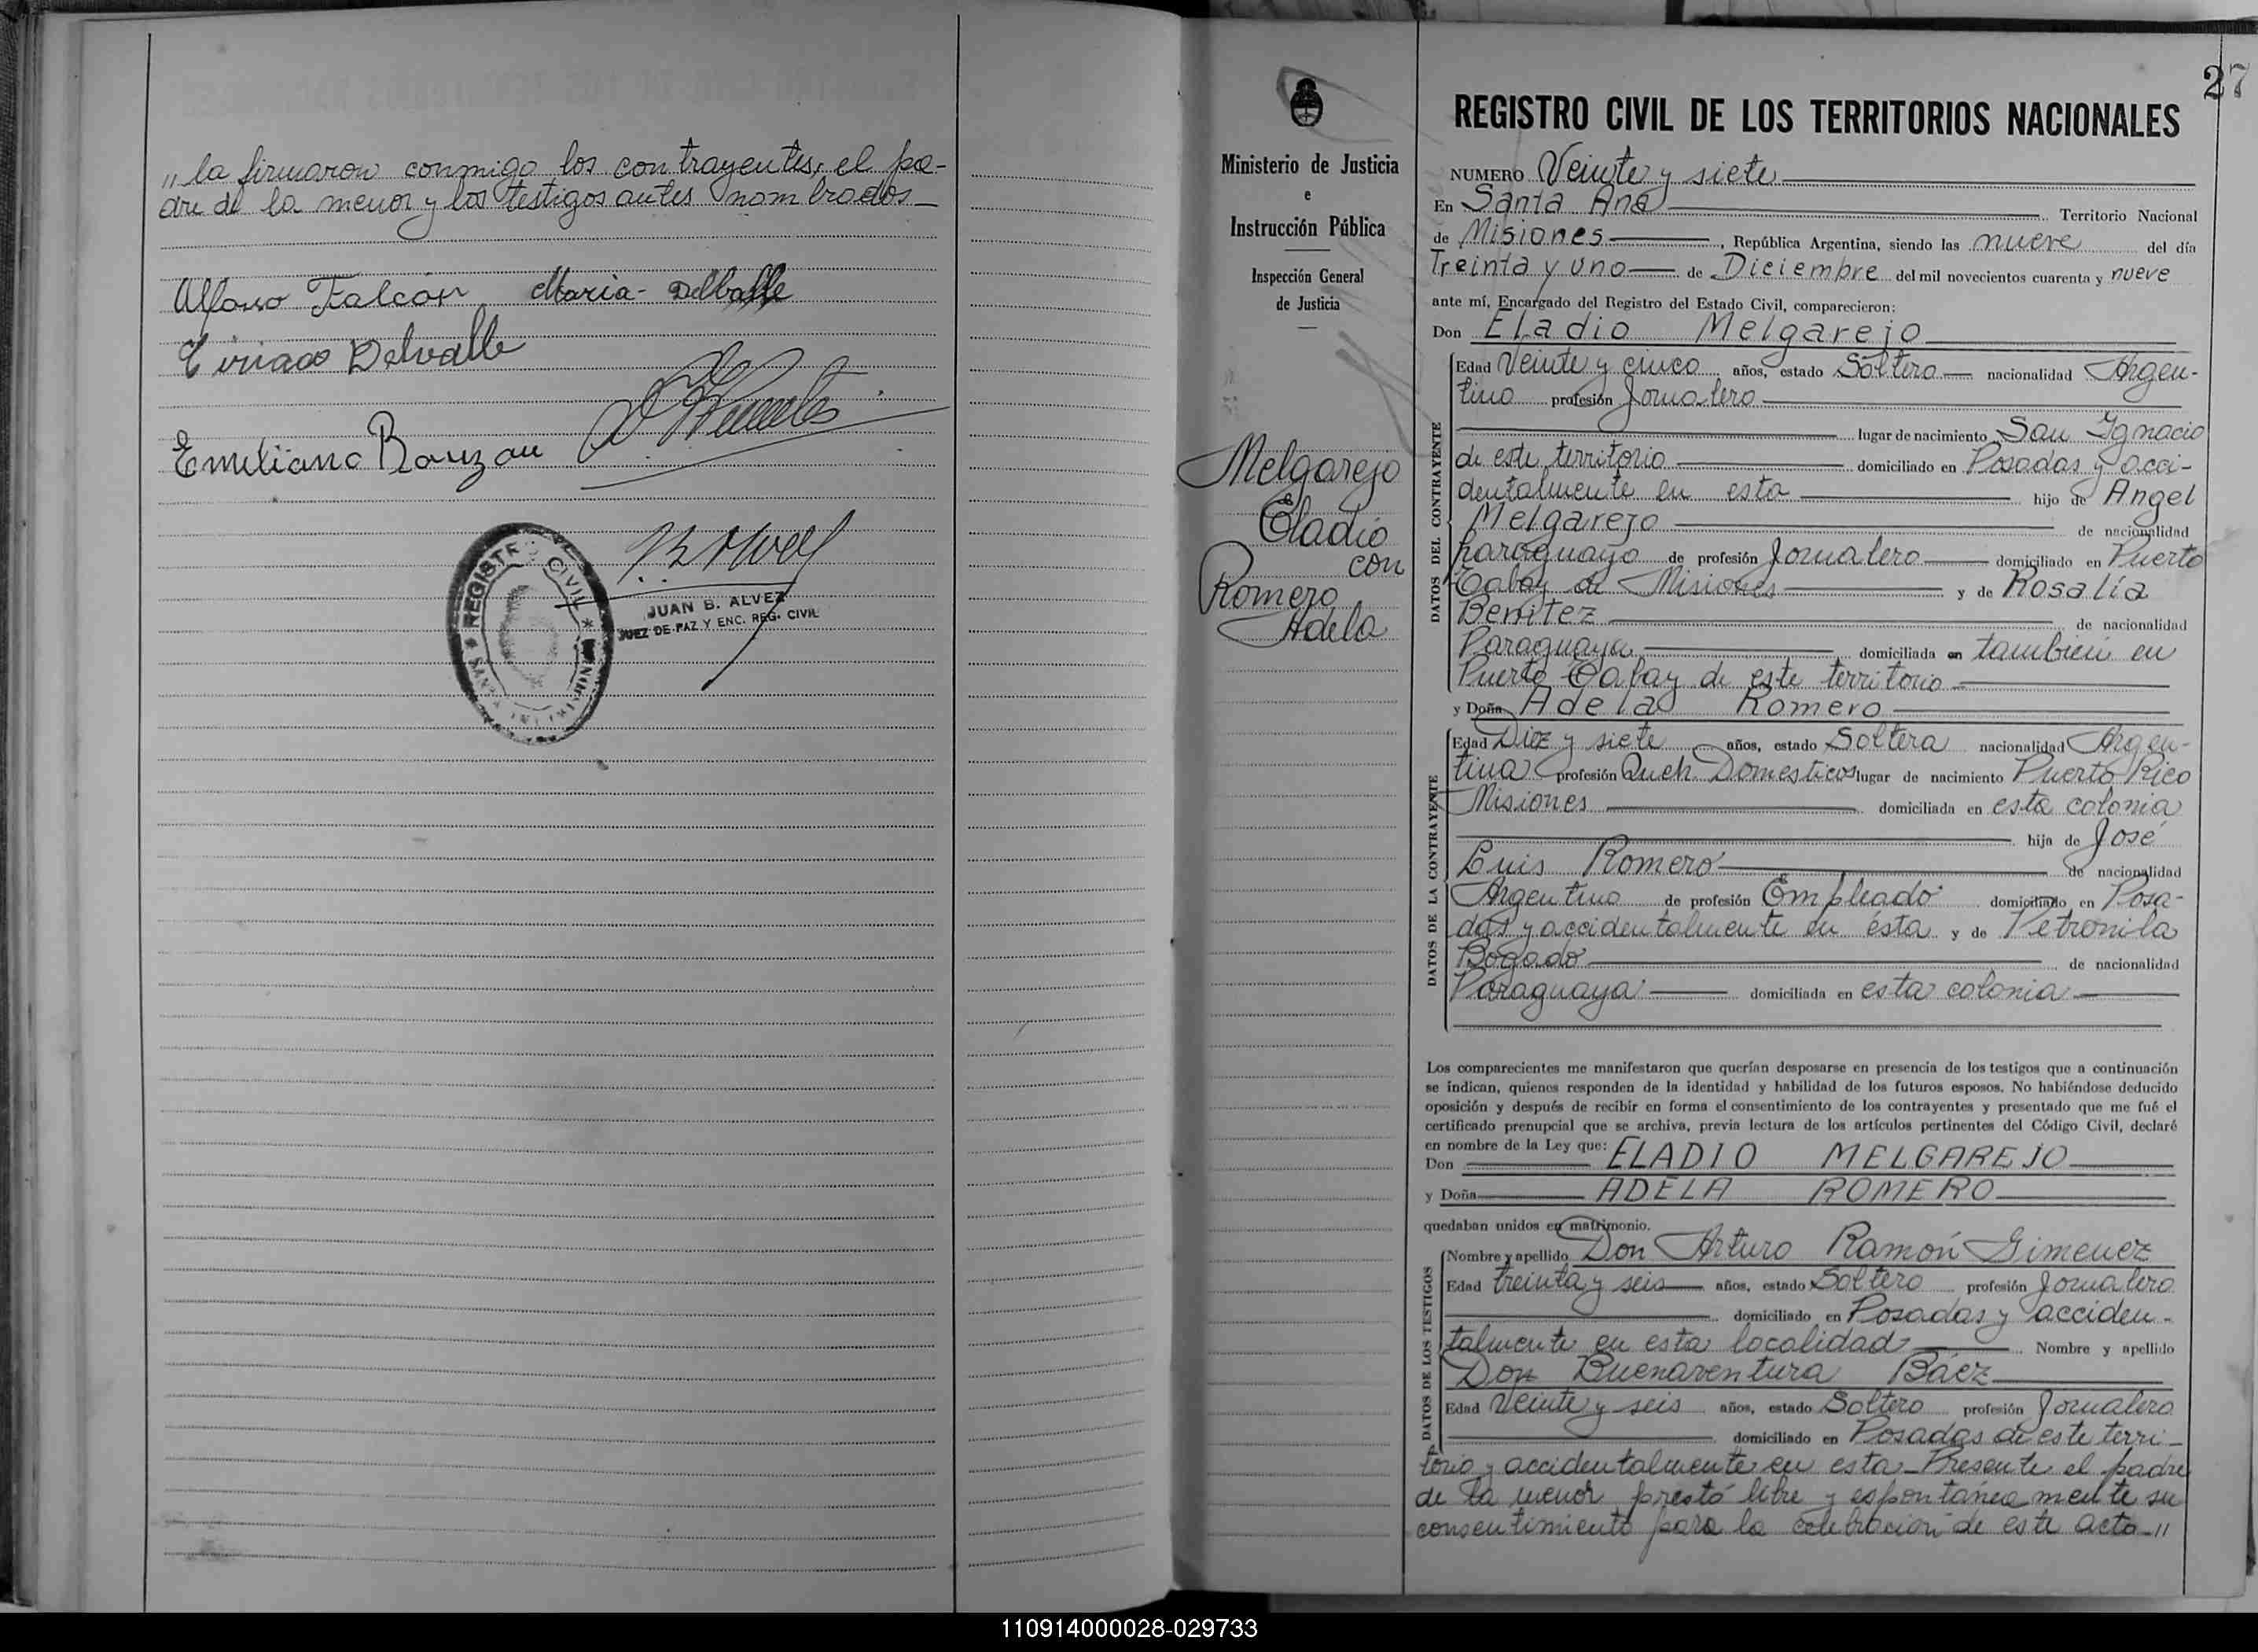 „ la firmaron conmigo los contrayentes, el pa-
dre de la menor y los testigos antes nombrados
Alfonso Falcón Maria Delballe
Ciriaco Delvalle
Emiliano
REGISTRO CIVIL
JUAN B. ALVEZ
JUEZ DE PAZ Y ENC. REG. CIVIL
Ministerio de Justicia
e
Instrucción Pública
Inspección General
de Justicia
Melgarejo
Eladio
con
Romero
Adela
27
REGISTRO CIVIL DE LOS TERRITORIOS NACIONALES
NUMERO Veinte y siete
En Santa Ana Territorio Nacional
de Misiones, República Argentina, siendo las nueve del día
Treinta y uno de Diciembre del mil novecientos cuarenta y nueve
ante mí, Encargado del Registro del Estado Civil, comparecieron:
Don Eladio Melgarejo
DATOS DEL CONTRAYENTE
Edad Veinte y cinco años, estado Soltero nacionalidad Argen-
tino profesión Jornalero
lugar de nacimiento San Ignacio
de este territorio domiciliado en Posadas y acci-
dentalmente en esta hijo de Angel
Melgarejo de nacionalidad
paraguayo de profesión Jornalero domiciliado en Puerto
Tabay de Misiones y de Rosalía
Benitez de nacionalidad
Paraguaya domiciliada en también en
Puerto Tabay de este territorio
y Doña Adela Romero
DATOS DE LA CONTRAYENTE
Edad Diez y siete años, estado Soltera nacionalidad Argen-
tina profesión Queh. Domesticos lugar de nacimiento Puerto Rico
Misiones domiciliada en esta colonia
hija de José
Luis Romero de nacionalidad
Argentino de profesión Empleado domiciliado en Posa-
das y accidentalmente en ésta y de Petronila
Bogado de nacionalidad
Paraguaya domiciliada en esta colonia
Los comparecientes me manifestaron que querían desposarse en presencia de los testigos que a continuación
se indican, quienes responden de la identidad y habilidad de los futuros esposos. No habiéndose deducido
oposición y después de recibir en forma el consentimiento de los contrayentes y presentado que me fué el
certificado prenupcial que se archiva, previa lectura de los artículos pertinentes del Código Civil, declaré
en nombre de la Ley que:
Don ELADIO MELGAREJO
y Doña ADELA ROMERO
quedaban unidos en matrimonio.
DATOS DE LOS TESTIGOS
Nombre y apellido Don Arturo Ramón Gimenez
Edad treinta y seis años, estado Soltero profesión Jornalero
domiciliado en Posadas y acciden-
talmente en esta localidad Nombre y apellido
Don Buenaventura Báez
Edad Veinte y seis años, estado Soltero profesión Jornalero
domiciliado en Posadas de este terri-
torio y accidentalmente en esta - Presente el padre
de la menor prestó libre y espontaneamente su
consentimiento para la celebración de este acto „
110914000028-029733